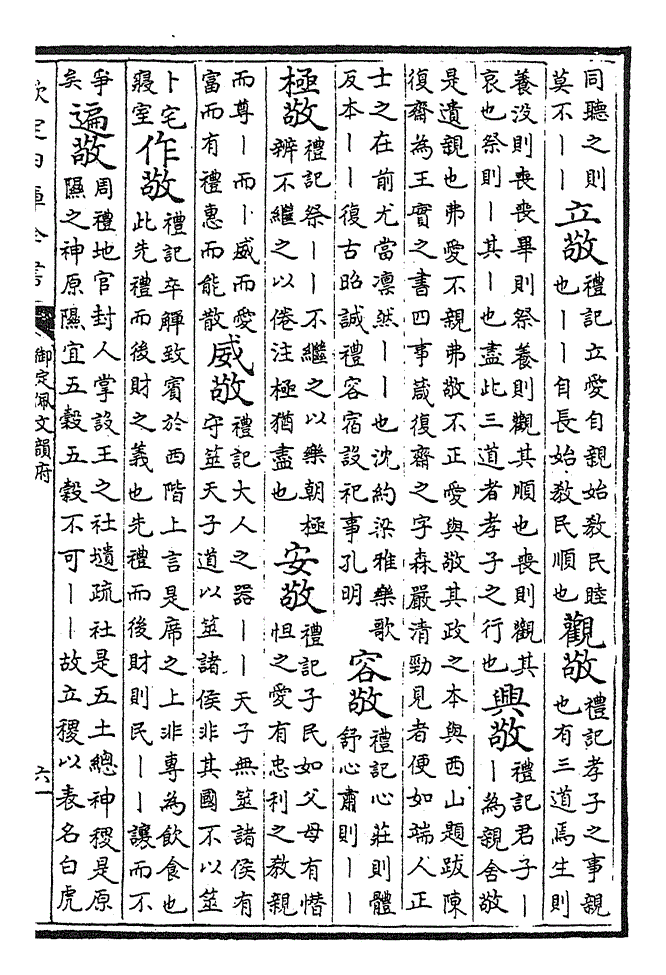 同聽之則
莫不丨丨
立敬
禮記立愛自親始教民睦
也丨丨自長始敎民順也
觀敬
禮記孝子之事親
也有三道焉生則
養没則喪喪畢則祭養則觀其順也喪則觀其
哀也祭則丨其丨也盡此三道者孝子之行也
興敬
禮記君子丨
丨為親舍敬
是遺親也弗愛不親弗敬不正愛與敬其政之本與西山題跋陳
復齋為王實之書四事葴復齋之字森嚴清勁見者便如端人正
士之在前尤當凛然丨丨也沈約梁雅樂歌
反本丨丨復古昭誠禮容宿設祀事孔明
容敬
禮記心莊則體
舒心肅則丨丨
極敬
禮記祭丨丨不繼之以樂朝極
辨不繼之以倦注極猶盡也
安敬
禮記子民如父母有憯
怛之愛有忠利之敎親
而尊丨而丨威而愛
富而有禮惠而能散
威敬
禮記大人之器丨丨天子無筮諸侯有
守筮天子道以筮諸侯非其國不以筮
卜宅
寢室
作敬
禮記卒觶致賓於西階上言是席之上非專為飲食也
此先禮而後財之義也先禮而後財則民丨丨讓而不
爭
矣
遍敬
周禮地官封人掌設王之社壝疏社是五土總神稷是原
隰之神原隰宜五穀五穀不可丨丨故立稷以表名白虎
欽定四庫全書
御定佩文韻府
六一